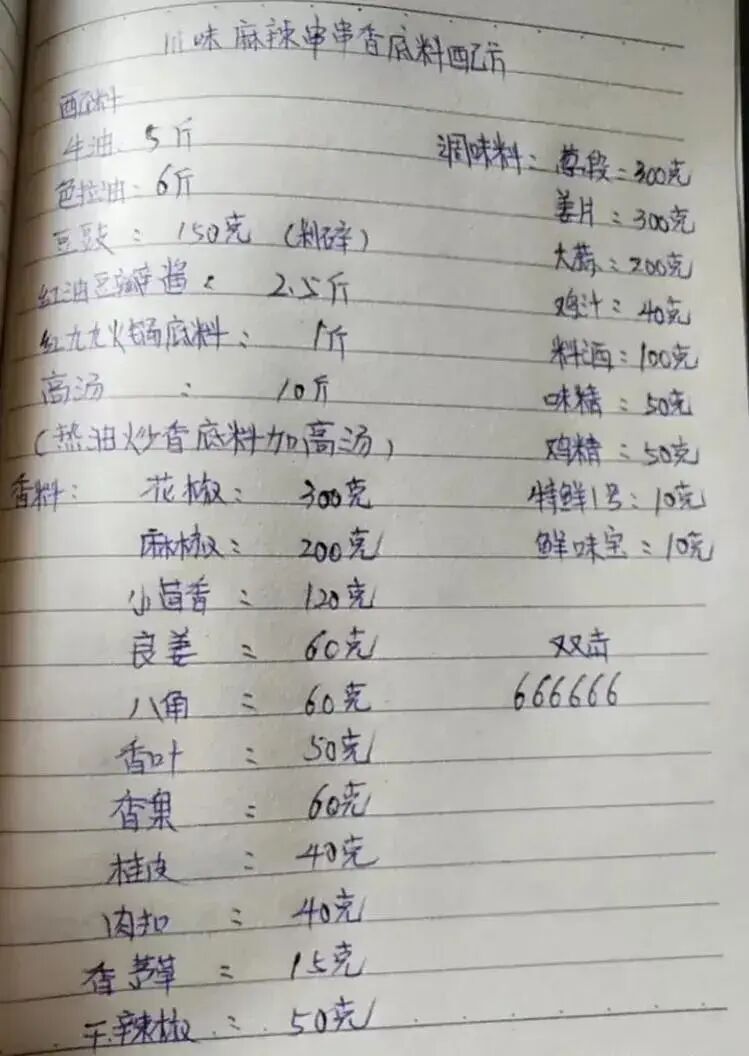 川味麻辣串串香底料配方
配料
牛油: 5斤
色拉油: 6斤
豆豉: 150克 (剁碎)
红油豆瓣酱: 2.5斤
红九九火锅底料: 1斤
高汤: 10斤
(热油炒香底料加高汤)
香料: 花椒: 300克
麻椒: 200克
小茴香: 120克
良姜: 60克
八角: 60克
香叶: 50克
香果: 60克
桂皮: 40克
肉扣: 40克
香茅草: 15克
干辣椒: 50克
调味料: 葱段: 300克
姜片: 300克
大蒜: 200克
鸡汁: 40克
料酒: 100克
味精: 50克
鸡精: 50克
特鲜1号: 10克
鲜味宝: 10克
双击
666666